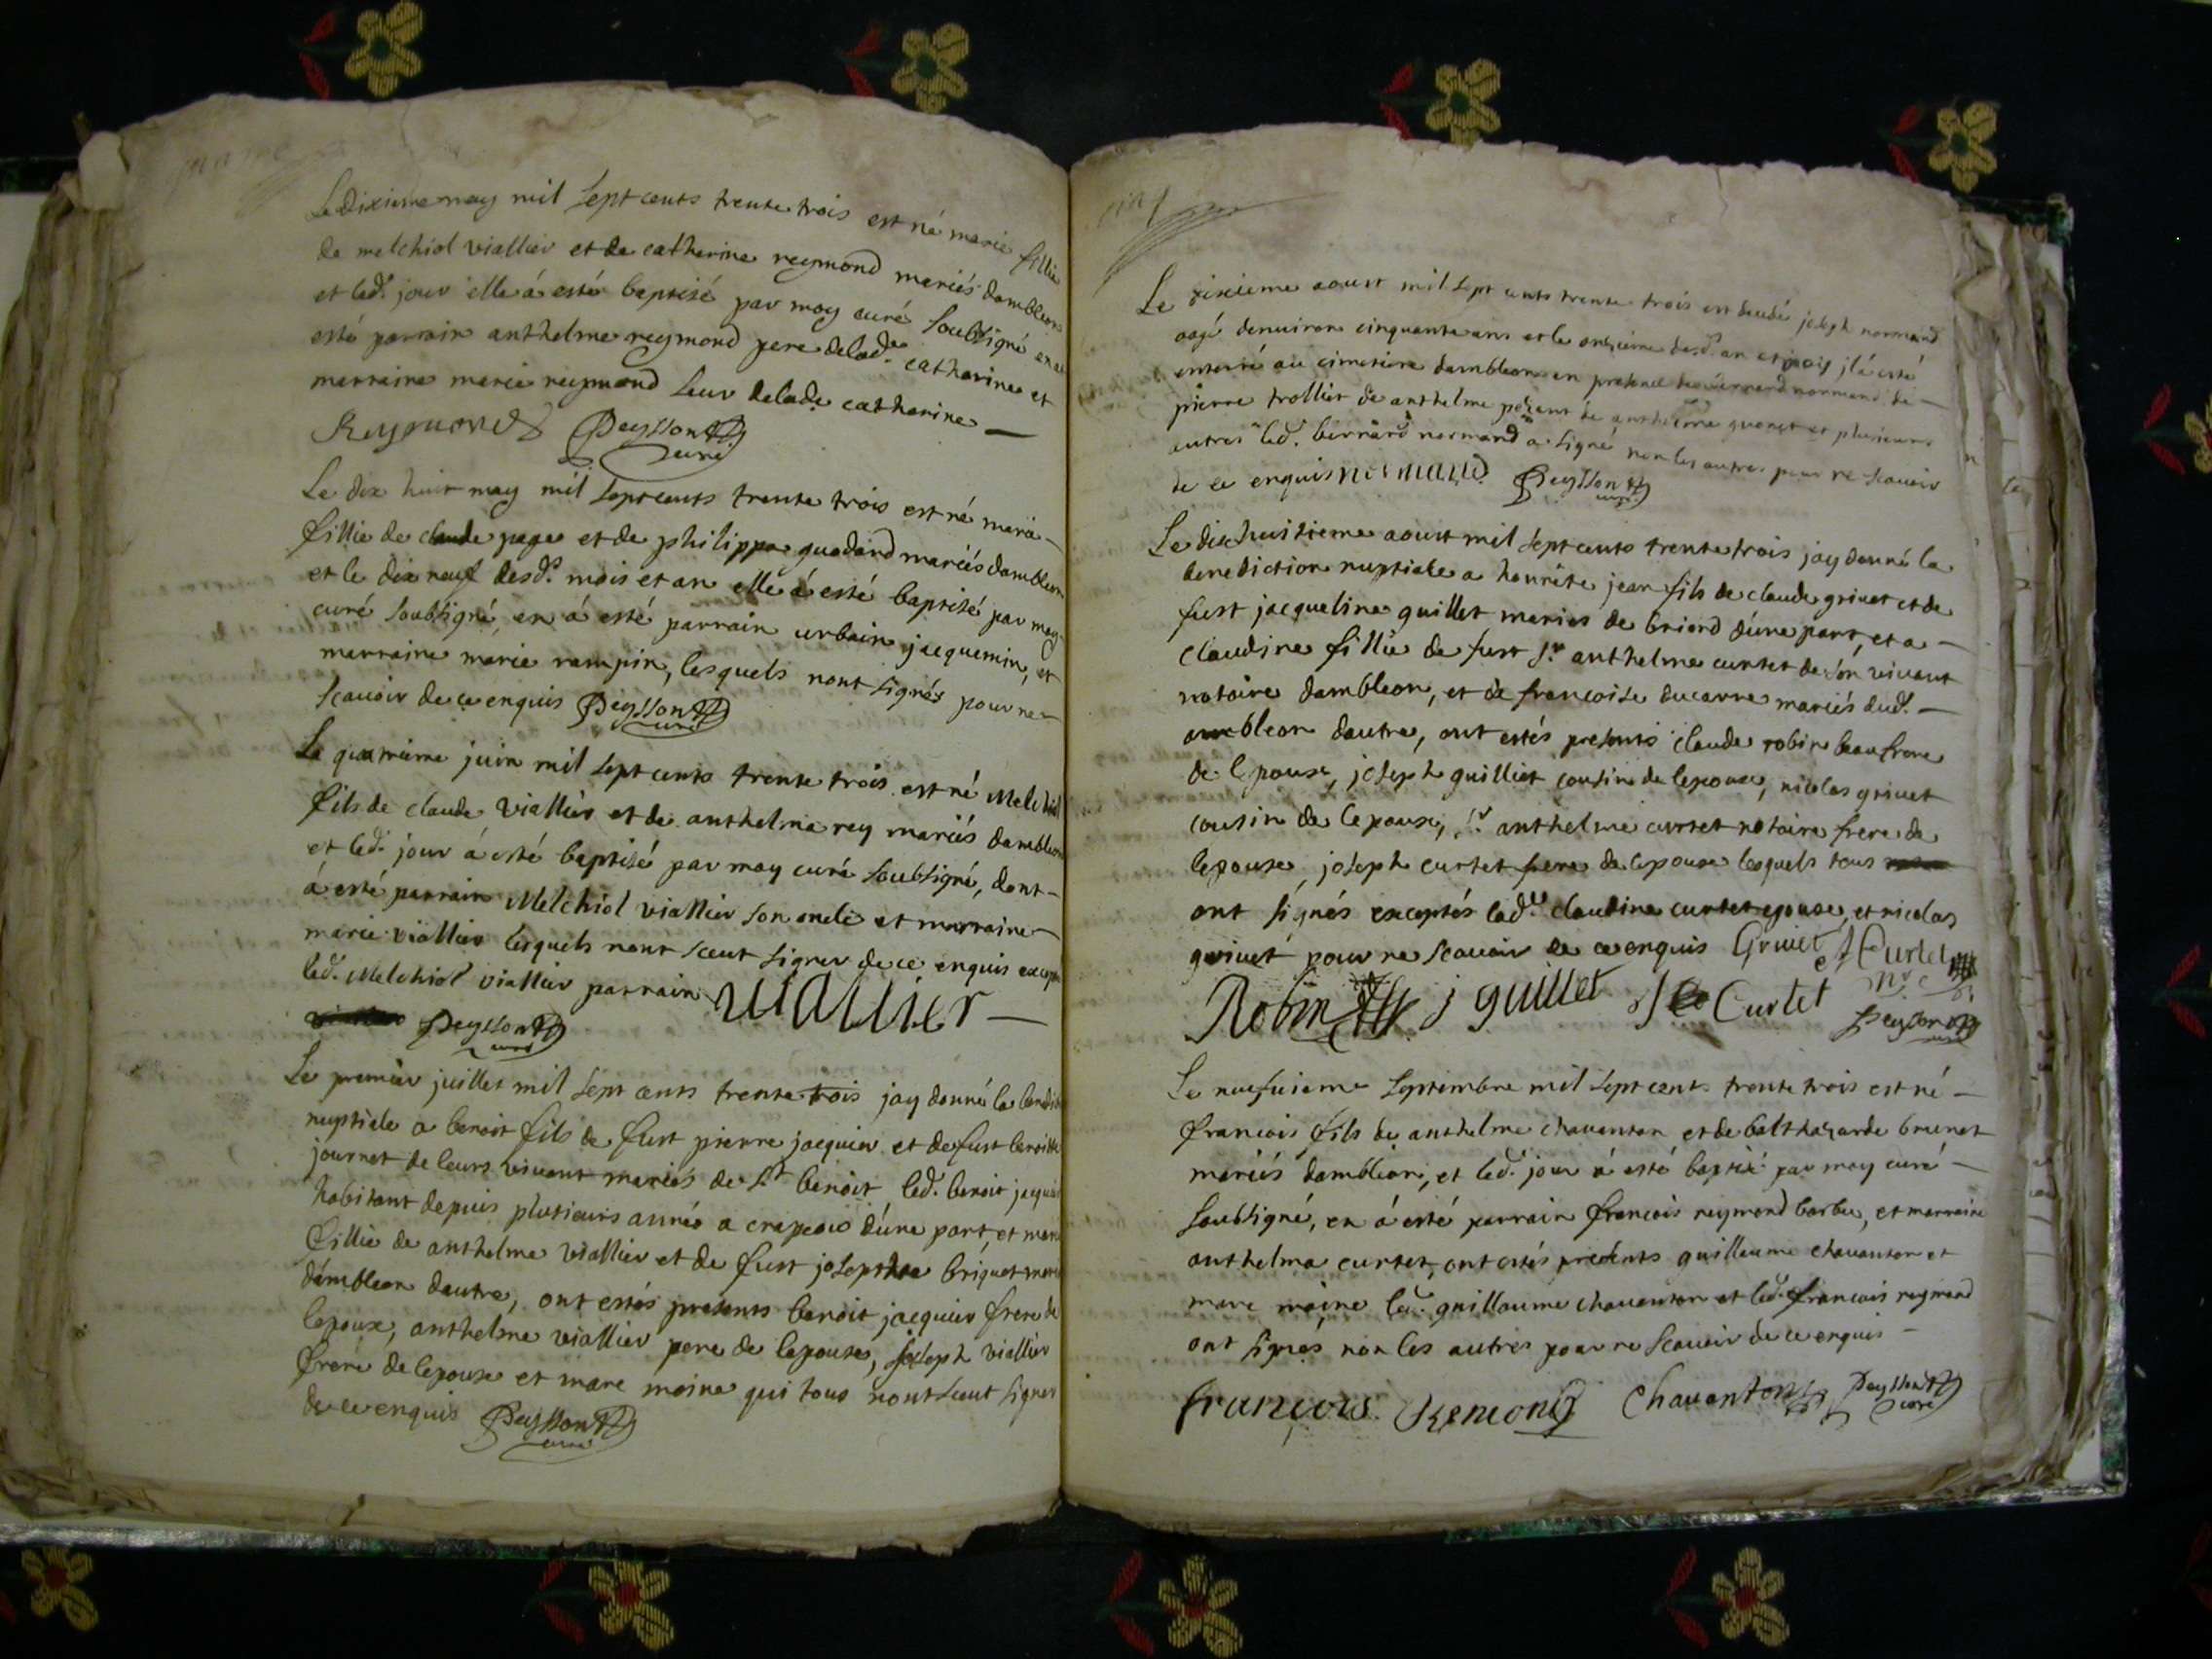 Le dixieme may mil sept cents trente trois est né marie fillie
de melchiol viallier et de catherine reymond mariés dambleon
et led. jour elle á esté baptisé par moy curé soubsigné en a
esté parrain anthelme reymond pere delade catharine et
marraine marie reymond seur delade catharine
Reymond Peysson curé
Le dix huit may mil sept cents trente trois est né maria
fillie de claude page et de philippa guadard mariés dambleon
et le dix neuf desd. mois et an elle á esté baptisé par moy
curé soubsigné, en á esté parrain urbain jacquemin, et
marraine marie rampin, lesquels nont signés pour ne
scavoir de ce enquis Peysson curé
Le quatrieme juin mil sept cents trente trois est né Melchiol
fils de claude viallier et de anthelma rey mariés dambleon
et led. jour á esté baptisé par moy curé soubsigné, dont
á esté parrain Melchiol viallier son oncle et marraine
marie viallier lesquels nont sceut signer de ce enquis excepté
led. Melchiol viallier parrain viallier
Peysson curé
Le premier juillet mil sept cents trente trois jay donné la
nuptiale a benoit fils de fust pierre jacquier et de fust benoitte
journet de leurs vivant mariés de St benoit led. benoit jacquier
habitant depuis plusieurs année a crapeou dúne part, et marie
fillie de anthelme viallier et de fust josephte briquet mariés
dámbleon dautre, ont estés presents benoit jacquier frere de
lepoux, anthelme viallier pere de lepouse, joseph viallier
frere de lepouse et marc moine qui tous nont sceut signer
de ce enquis Peysson curé
Le aoust mil sept cents trente trois est decedé joseph normand
aagé denviron cinquante ans et le onzieme desd. an et mois il á esté
enterré au cimetiere dambleon en presence de bernard normand de
pierre trollier de anthelme pezant de anthelme et plusieurs
autres led. bernard normand a signé non les autres pour ne scavoir
de ce enquis normand Peysson curé
Le dixhuitieme aoust mil sept cents trente trois jay donné la
benediction nuptiale a honnéte jean fils de claude grivet et de
fust jacqueline guillet mariés de briord dúne part, et a
claudine fillie de fust Sr. anthelme curtet de son vivant
notaire dambleon, et de francoise ducarre mariés dud.
ambleon dautre, ont estés presents claude robin beaufrere
de lepouse, joseph guilliet cousin de lepoux, nicolas grivet
cousin de lepoux, Sr anthelme curtet notaire frere de
lepouse, joseph curtet frere de lepouse lesquels tous
ont signés exceptés lade. claudine curtet epouse, et nicolas
grivet pour ne scavoir de ce enquis Grivet Curtet
Robin j guillet Curtet Peysson
Le neufvieme septembre mil sept cents trente trois est né
francois fils de anthelme chavanton et de balthazarde brunet
mariés dambleon, et led. jour á esté baptisé par moy curé
soubsigné, en á esté parrain francois reymond barbe, et marraine
anthelma curtet, ont estés presents guillaume chavanton et
marc moine led. guillaume chavanton et led. francois reymond
ont signés non les autres pour ne scavoir de ce enquis
françois Remond Chavanton Peysson curé